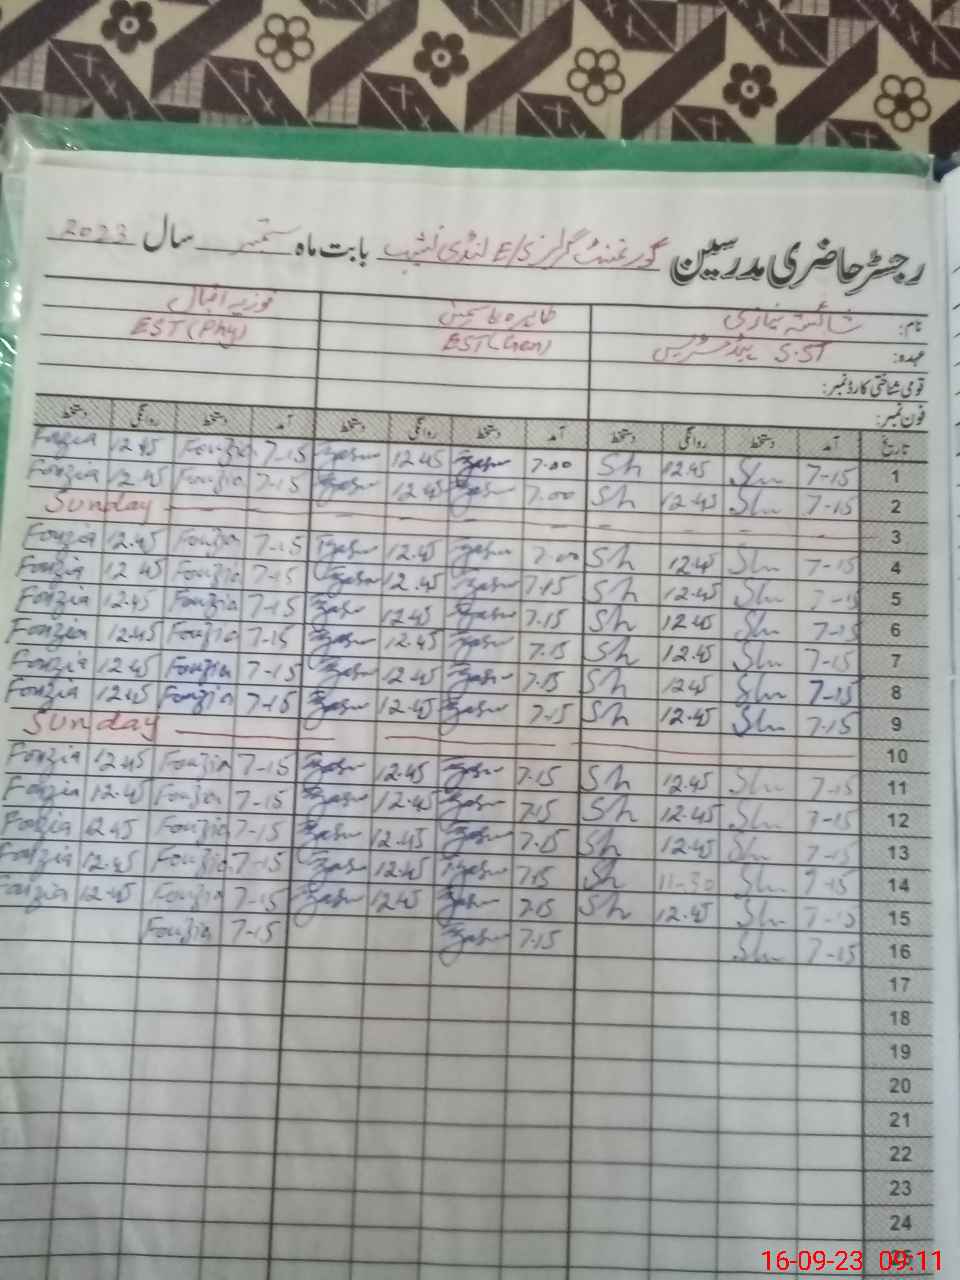 رجسٹر حاضری مدرسین گورنمنٹ گرلز E/S لنڈی نشیب بابت ماہ ستمبر سال 2023
نام: شائستہ نیازی طاہرہ یاسمین فوزیہ اقبال
عہدہ: S.ST ہیڈ مسٹریس EST(Gen) EST(Phy)
قومی شناختی کارڈ نمبر:
فون نمبر:
تاریخ آمد دستخط روانگی دستخط آمد دستخط روانگی دستخط آمد دستخط روانگی دستخط
1 7-15 Sh 12.45 Sh 7.00 12.45 7-15 Fouzia 12.45 Fouzia
2 7-15 Sh 12.45 Sh 7.00 12.45 7-15 Fouzia 12.45 Fouzia
3 Sunday
4 7-15 Sh 12.45 Sh 7.00 12.45 7-15 Fouzia 12.45 Fouzia
5 7-15 Sh 12.45 Sh 7.15 12.45 7-15 Fouzia 12.45 Fouzia
6 7-15 Sh 12.45 Sh 7.15 12.45 7-15 Fouzia 12.45 Fouzia
7 7-15 Sh 12.45 Sh 7.15 12.45 7-15 Fouzia 12.45 Fouzia
8 7-15 Sh 12.45 Sh 7.15 12.45 7-15 Fouzia 12.45 Fouzia
9 7-15 Sh 12.45 Sh 7-15 12.45 7-15 Fouzia 12.45 Fouzia
10 Sunday
11 7-15 Sh 12.45 Sh 7.15 12.45 7-15 Fouzia 12.45 Fouzia
12 7-15 Sh 12.45 Sh 7.15 12.45 7-15 Fouzia 12.45 Fouzia
13 7-15 Sh 12.45 Sh 7.15 12.45 7-15 Fouzia 12.45 Fouzia
14 7-15 Sh 11-30 Sh 7.15 12.45 7-15 Fouzia 12.45 Fouzia
15 7-15 Sh 12.45 Sh 7.15 12.45 7-15 Fouzia 12.45 Fouzia
16 7-15 Sh 7.15 7-15 Fouzia
17
18
19
20
21
22
23
24
25
16-09-23 09:11